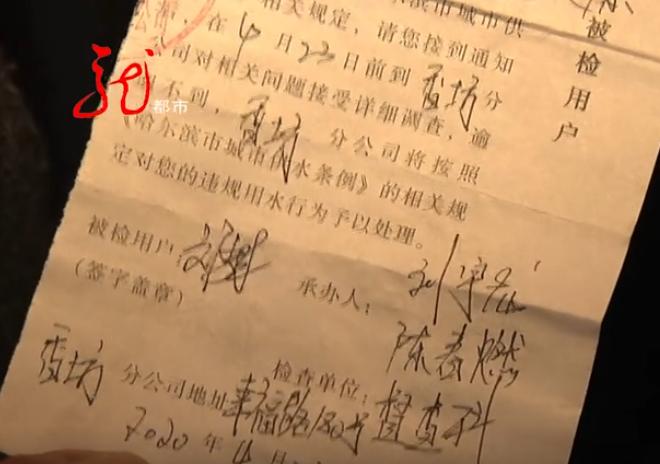 相关规定，请您接到通知
在4月22日前到香坊分
司对相关问题接受详细调查，逾
不到，香坊分公司将按照
《哈尔滨市城市供水条例》的相关规
定对您的违规用水行为予以处理。
被检用户：
承办人：
（签字盖章）
陈春燃
检查单位：督查科
香坊分公司地址：幸福路180号
2020年4月
被检用户
龙 都市